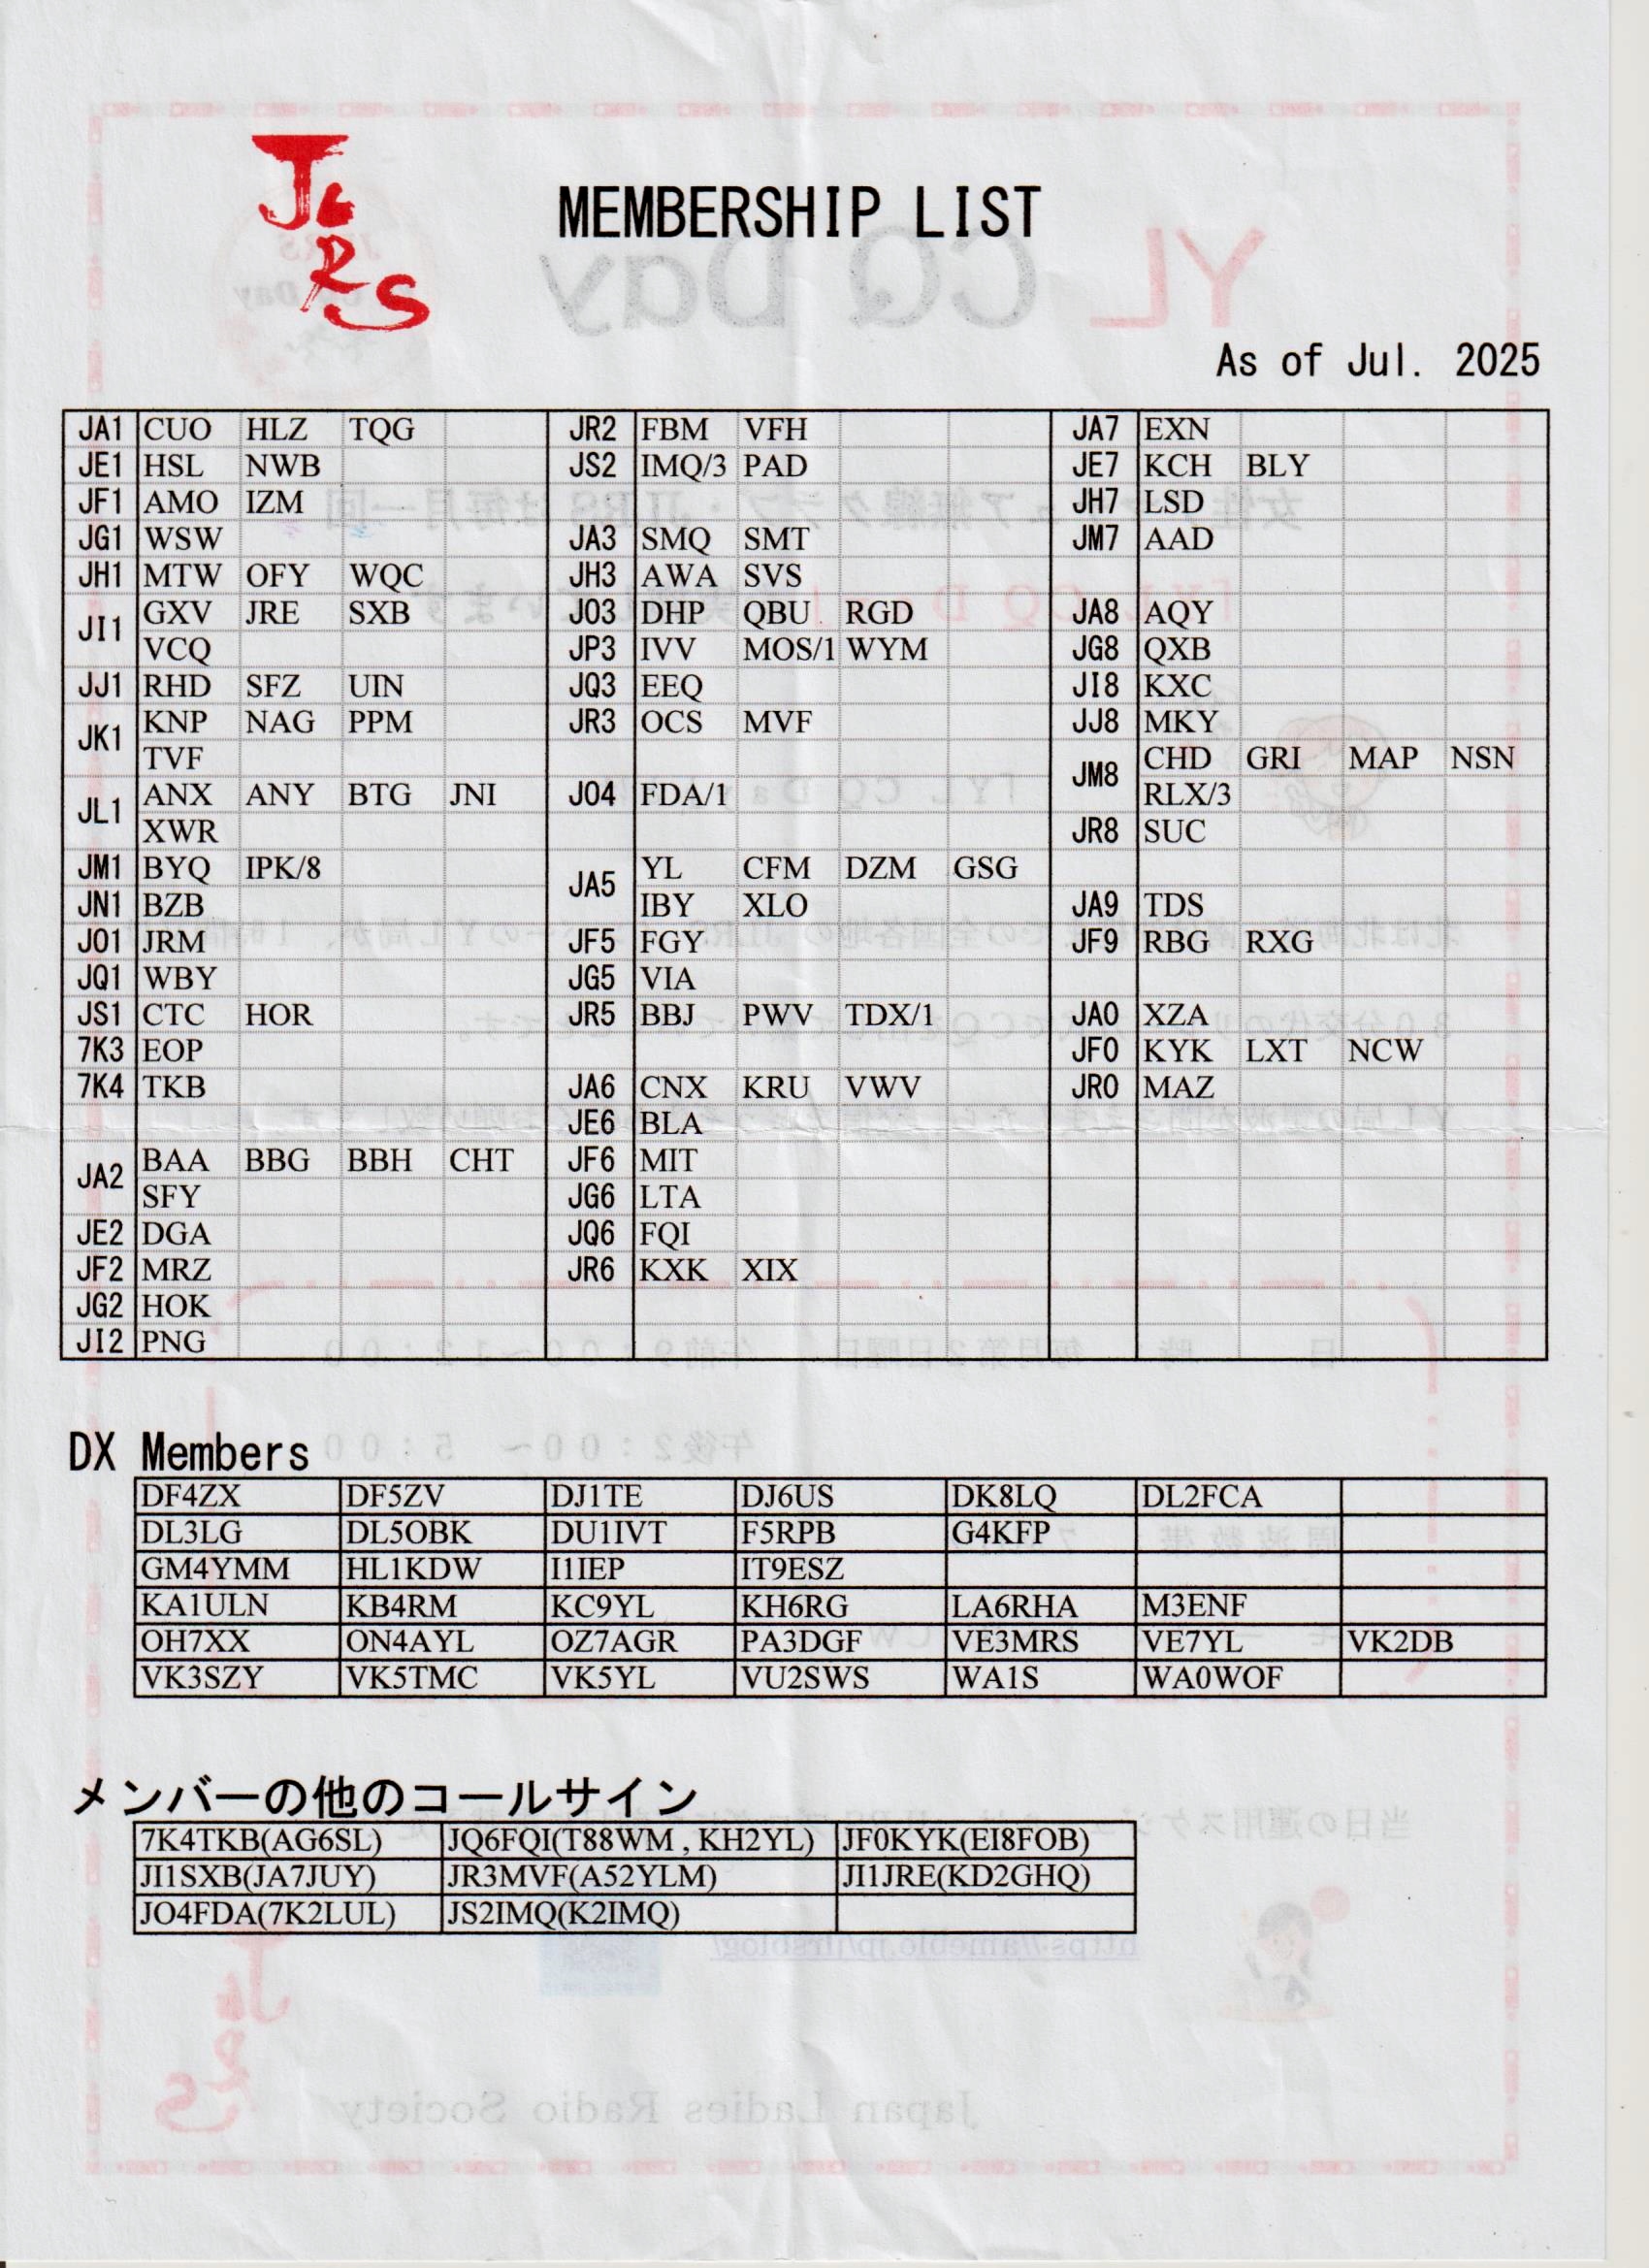 JLRS
MEMBERSHIP LIST
As of Jul. 2025
JA1 CUO HLZ TQG JR2 FBM VFH JA7 EXN
JE1 HSL NWB JS2 IMQ/3 PAD JE7 KCH BLY
JF1 AMO IZM JH7 LSD
JG1 WSW JA3 SMQ SMT JM7 AAD
JH1 MTW OFY WQC JH3 AWA SVS
JI1 GXV JRE SXB JO3 DHP QBU RGD JA8 AQY
VCQ JP3 IVV MOS/1 WYM JG8 QXB
JJ1 RHD SFZ UIN JQ3 EEQ JI8 KXC
JK1 KNP NAG PPM JR3 OCS MVF JJ8 MKY
TVF JM8 CHD GRI MAP NSN
JL1 ANX ANY BTG JNI JO4 FDA/1 RLX/3
XWR JR8 SUC
JM1 BYQ IPK/8 JA5 YL CFM DZM GSG
JN1 BZB IBY XLO JA9 TDS
JO1 JRM JF5 FGY JF9 RBG RXG
JQ1 WBY JG5 VIA
JS1 CTC HOR JR5 BBJ PWV TDX/1 JA0 XZA
7K3 EOP JF0 KYK LXT NCW
7K4 TKB JA6 CNX KRU VWV JR0 MAZ
JE6 BLA
JA2 BAA BBG BBH CHT JF6 MIT
SFY JG6 LTA
JE2 DGA JQ6 FQI
JF2 MRZ JR6 KXK XIX
JG2 HOK
JI2 PNG
DX Members
DF4ZX DF5ZV DJ1TE DJ6US DK8LQ DL2FCA
DL3LG DL5OBK DU1IVT F5RPB G4KFP
GM4YMM HL1KDW I1IEP IT9ESZ
KA1ULN KB4RM KC9YL KH6RG LA6RHA M3ENF
OH7XX ON4AYL OZ7AGR PA3DGF VE3MRS VE7YL VK2DB
VK3SZY VK5TMC VK5YL VU2SWS WA1S WA0WOF
メンバーの他のコールサイン
7K4TKB(AG6SL) JQ6FQI(T88WM , KH2YL) JF0KYK(EI8FOB)
JI1SXB(JA7JUY) JR3MVF(A52YLM) JI1JRE(KD2GHQ)
JO4FDA(7K2LUL) JS2IMQ(K2IMQ)